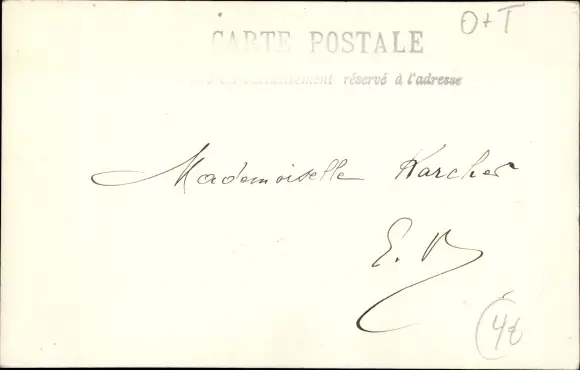 O+T
CARTE POSTALE
exclusivement réservé à l'adresse
Mademoiselle Karcher
E. V.
4E